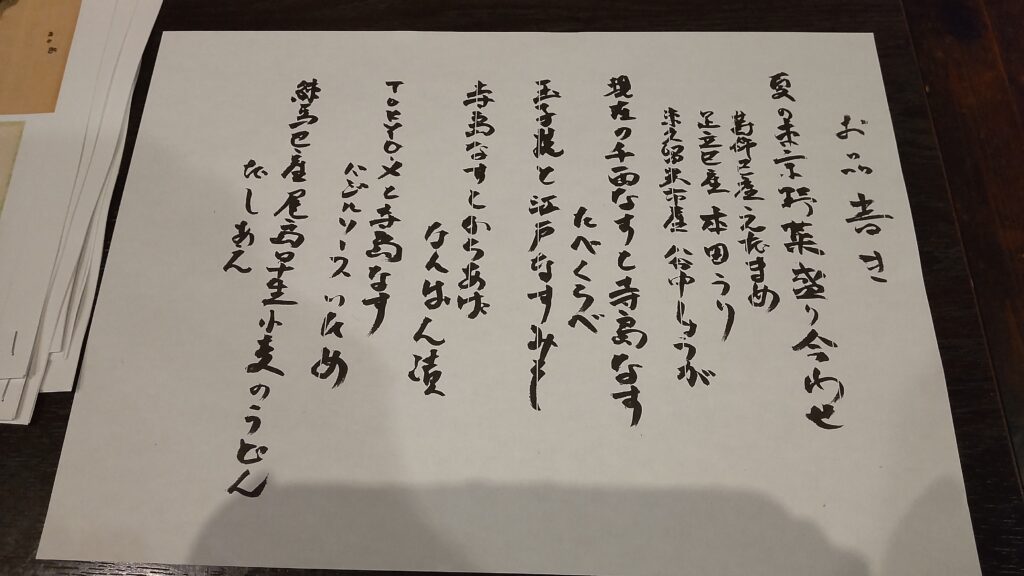 お品書き
夏の東京野菜盛り合わせ
葛飾区産えだまめ
足立区産 本田うり
東京都 谷中しょうが
現在の千両なすと寺島なす
たべくらべ
玉子豆腐と江戸なすみそ
寺島なすとからあげ
なんばん漬
TOKYO Xと寺島なす
バジルソースいため
練馬区産 尾高早生小麦のうどん
だしあん